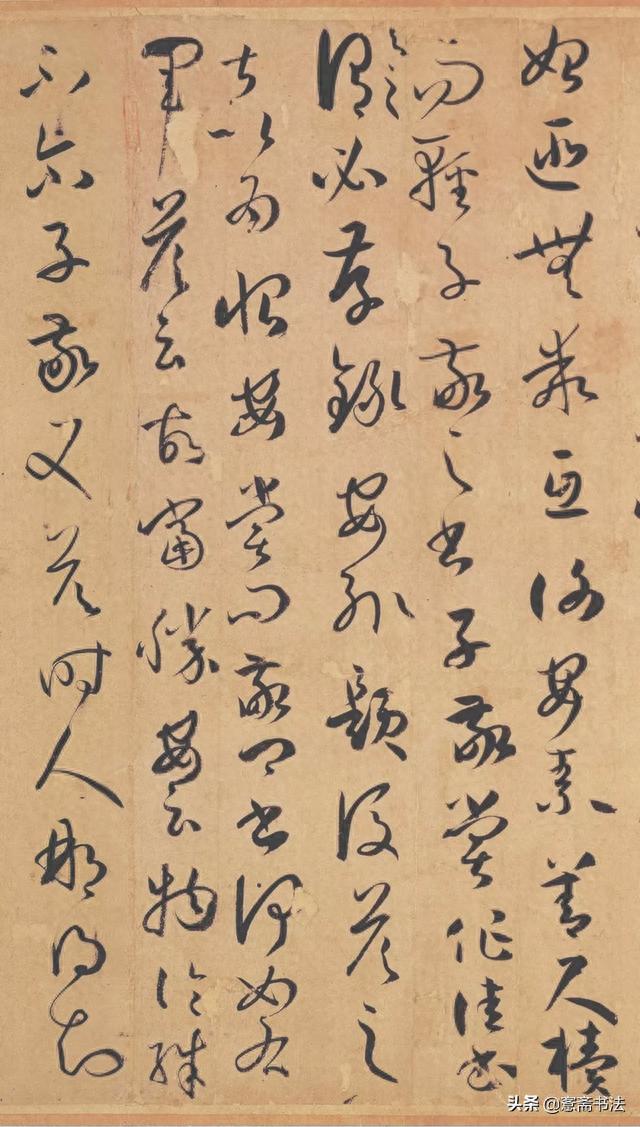 始匪無乖互謝安素善尺牘
而輕子敬之書子敬嘗作佳書
與之謂必存錄安輒題後答之
甚以為恨安嘗問敬卿書何如右
軍答云故當勝安云物論殊
不尒子敬又答時人那得知
头条 @寭斋书法